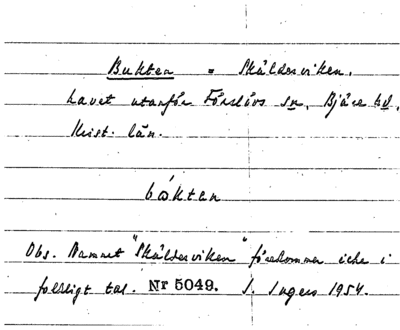 Bukten = Skälderviken.
Havet utanför Förslövs sn, Bjäre hd,
Krist. län.
båktan
Obs. Namnet "Skälderviken" förekommer icke i
folkligt tal. Nr 5049. I. Ingers 1954.